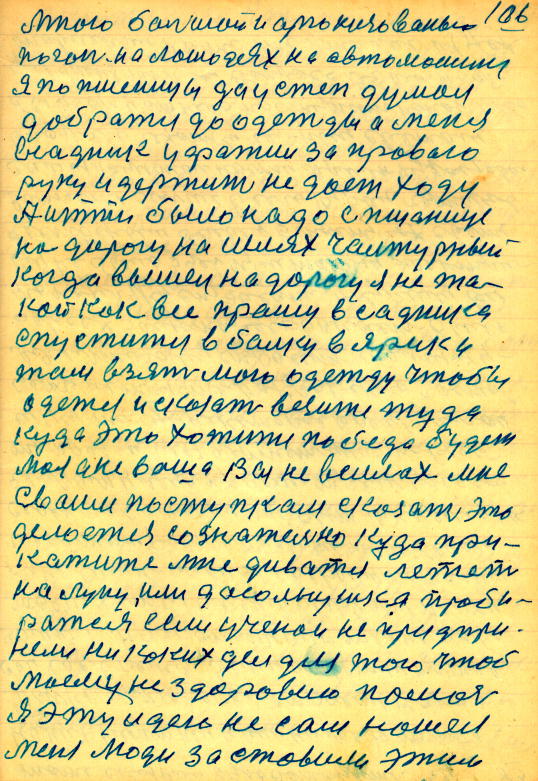 186
много болшой и арганизованы
погон на лошодях на автомошине
я по пшеницы да устеп думол
добратц до одежды а меня
всадник ухратил за провою
руку и держит не дает ходу
А итти было надо с пшаницы
на дорогу на шлях Чалтурный
когда вышел на дорогу я не та-
кой как все прашу всадника
спуститц в балку в ярик и
там взять мою одежду чтобы
одетця и сказать везите туда
куда это хотите победа будет
моя а не ваша Вы не всилах мне
сваим поступкам сказать это
делоется сознательно куда при-
кажите мне диватця летети
на луну, или до солнушка проби-
ратся если ученаи не придпри-
нели ни коких дел для того чтоб
моему не здоровию помоч
Я эту идею не сам нашел
меня люди заставили этим